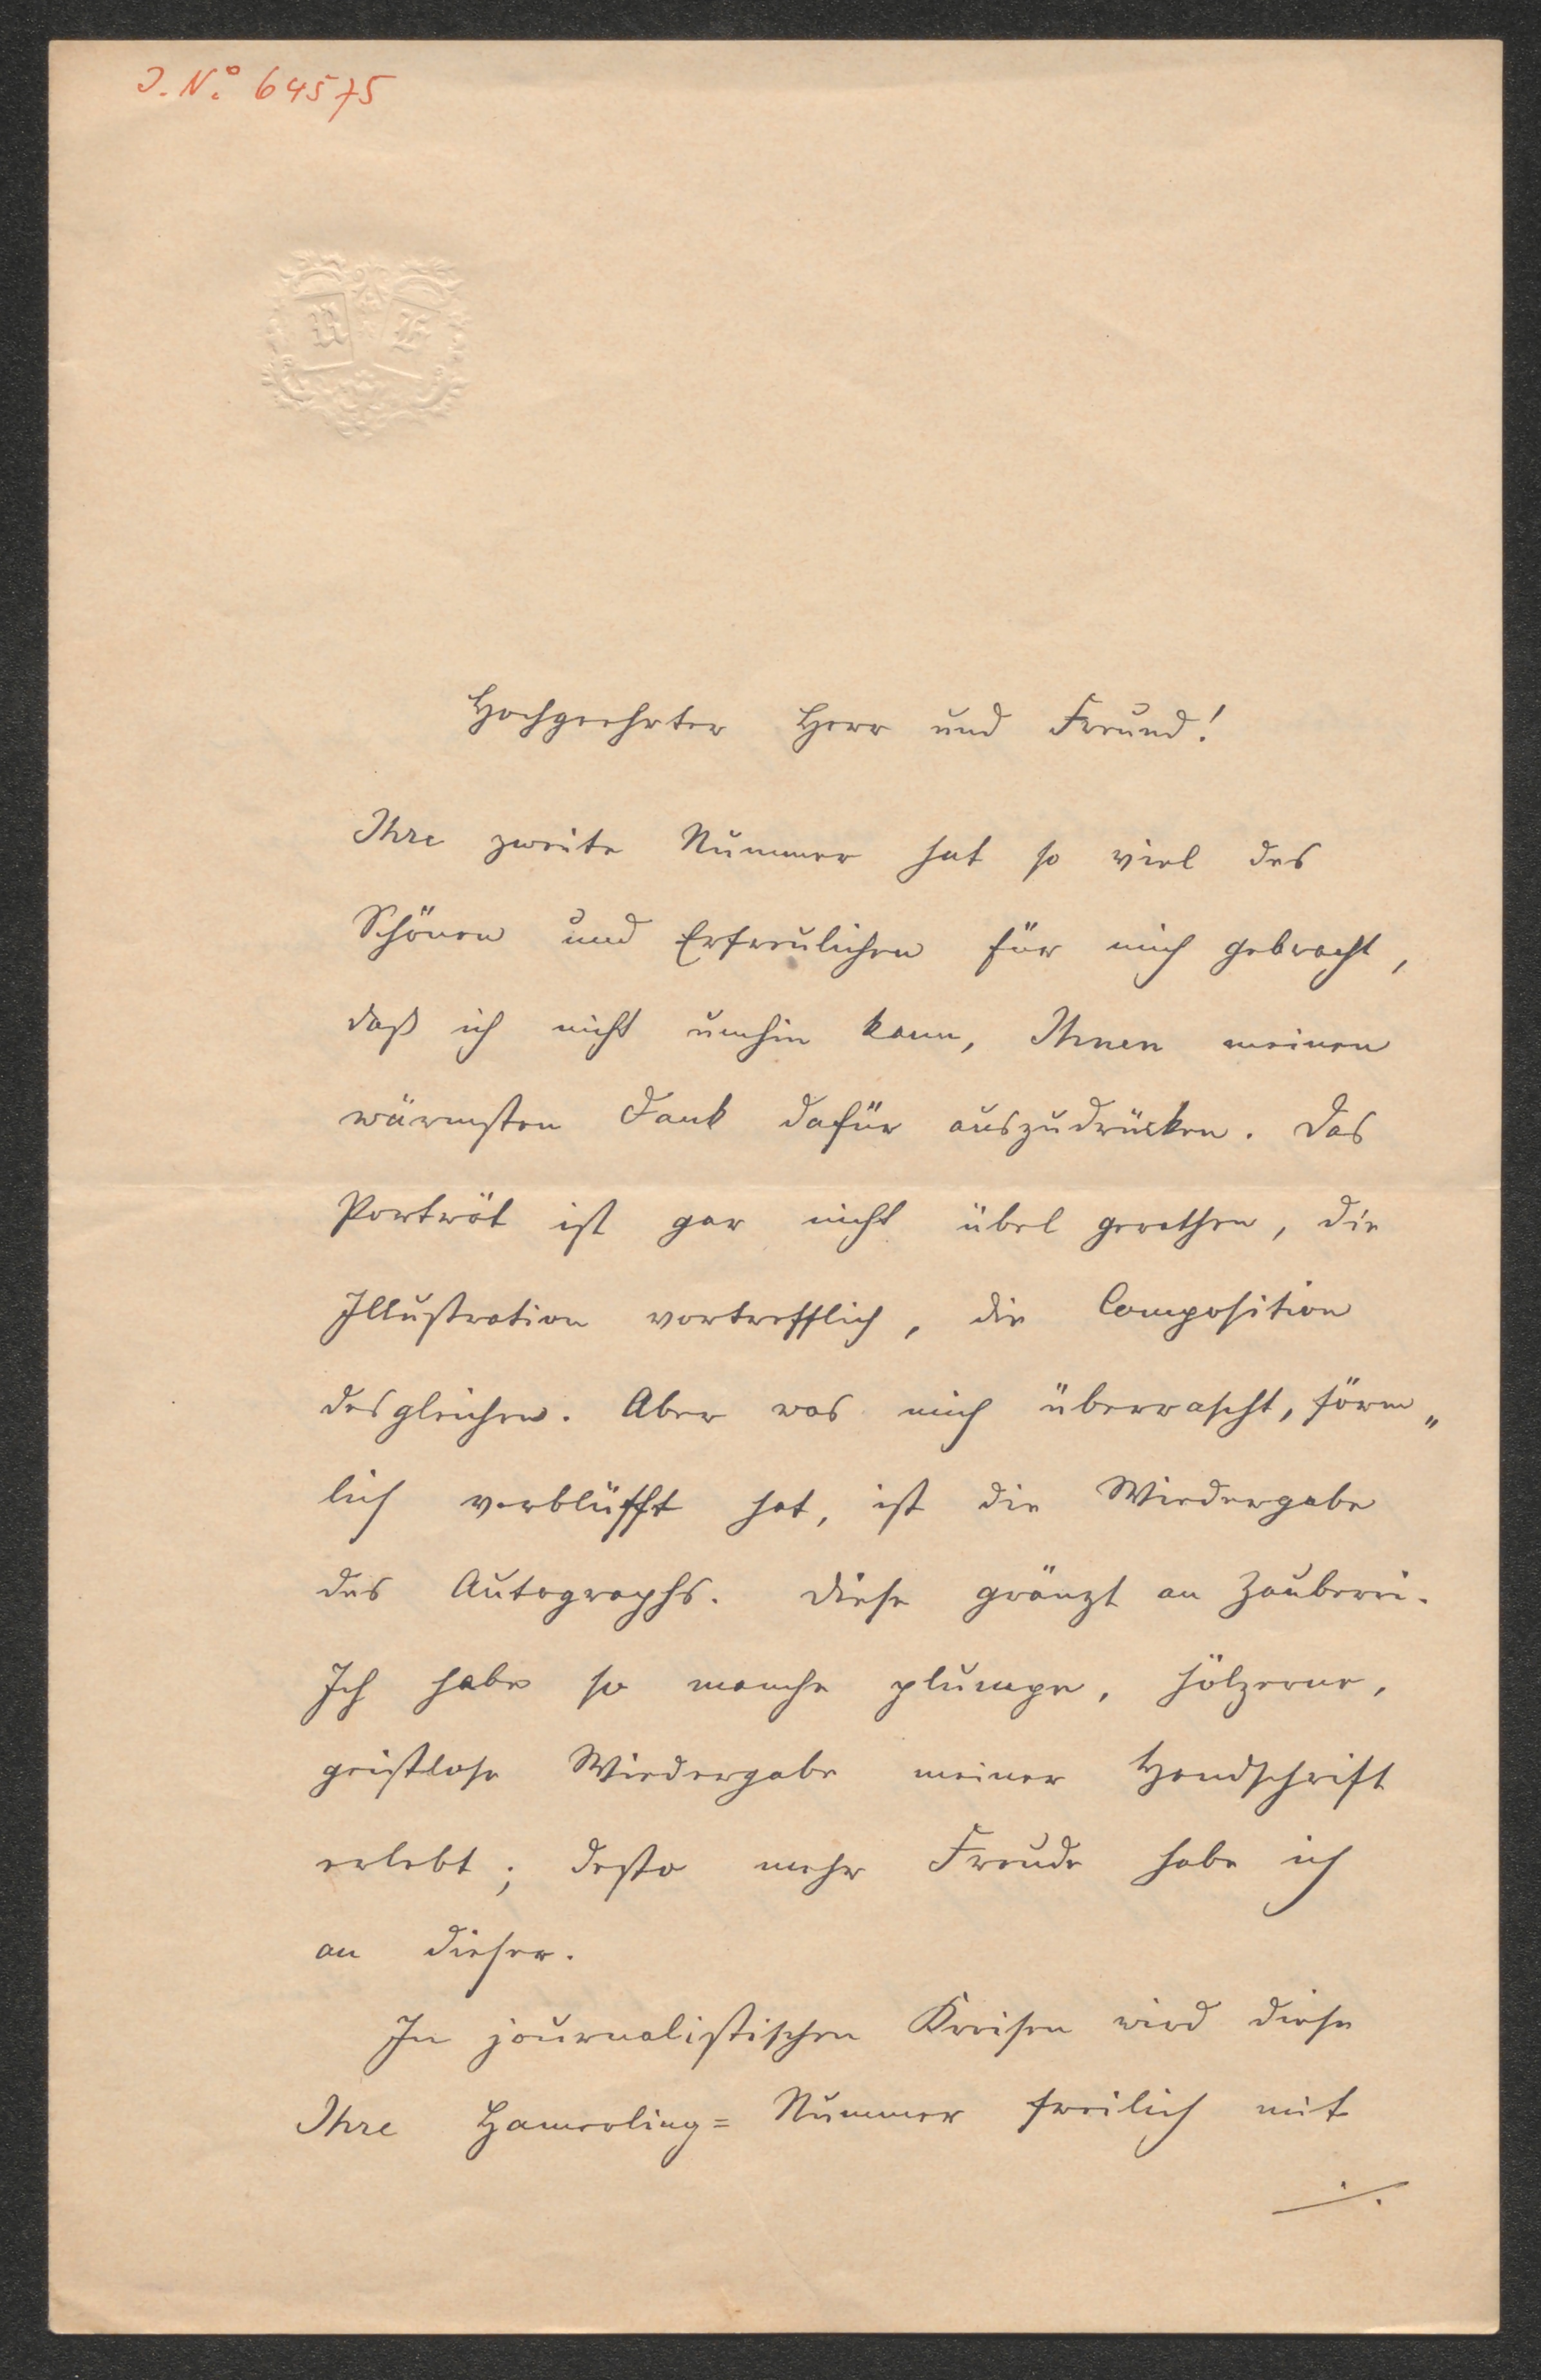 J. No. 64575
R H
Hochgeehrter Herr und Freund!
Ihre zweite Nummer hat so viel des
Schönen und Erfreulichen für mich gebracht,
daß ich nicht umhin kann, Ihnen meinen
wärmsten Dank dafür auszudrücken. Das
Porträt ist gar nicht übel gerathen, die
Illustration vortrefflich, die Composition
desgleichen. Aber was mich überrascht, förm„
lich verblüfft hat, ist die Wiedergabe
des Autographs. Diese gränzt an Zauberei.
Ich habe so manche plumpe, hölzerne,
geistlose Wiedergabe meiner Handschrift
erlebt; desto mehr Freude habe ich
an dieser.
In journalistischen Kreisen wird diese
Ihre Hamerling= Nummer freilich mit
./.